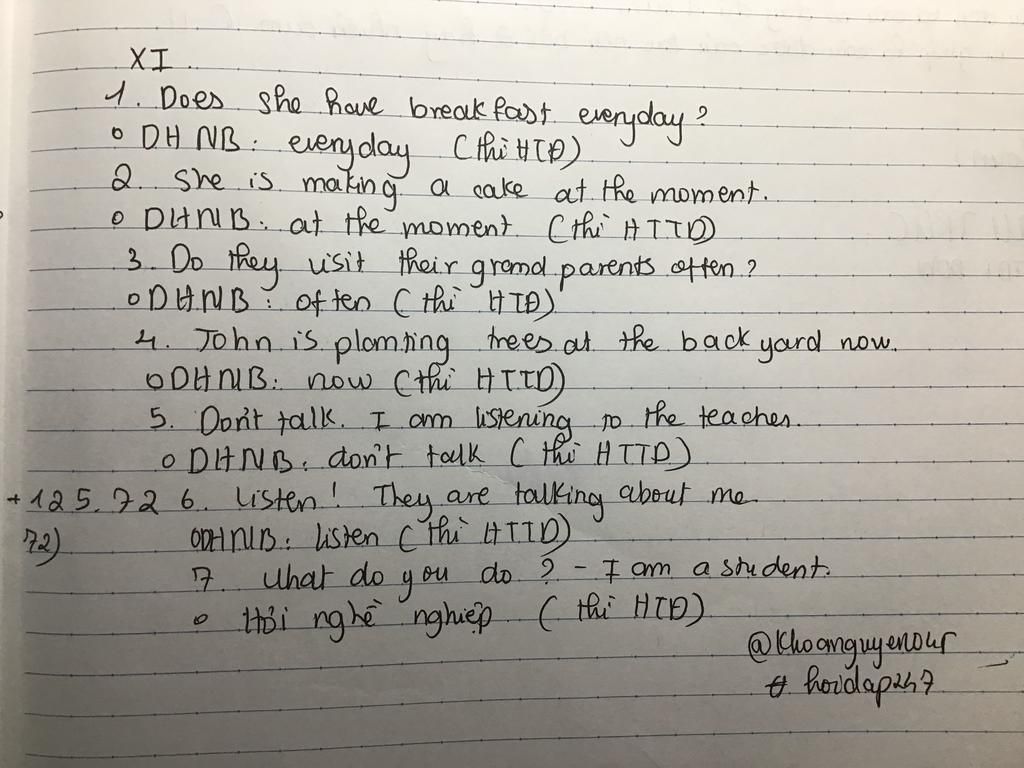 XI
1. Does she have breakfast everyday?
o DHNB: everyday (thì HTĐ)
2. She is making a cake at the moment.
o DHNB: at the moment (thì HTTD)
3. Do they visit their grand parents often?
o DHNB: often (thì HTĐ)
4. John is planting trees at the back yard now.
o DHNB: now (thì HTTD)
5. Don't talk. I am listening to the teacher.
o DHNB: don't talk (thì HTTD)
+125.72 6. Listen! They are talking about me.
72) o DHNB: listen (thì HTTD)
7. What do you do? - I am a student.
o Hỏi nghề nghiệp (thì HTĐ)
@Khoanguyenour
# hoidap247